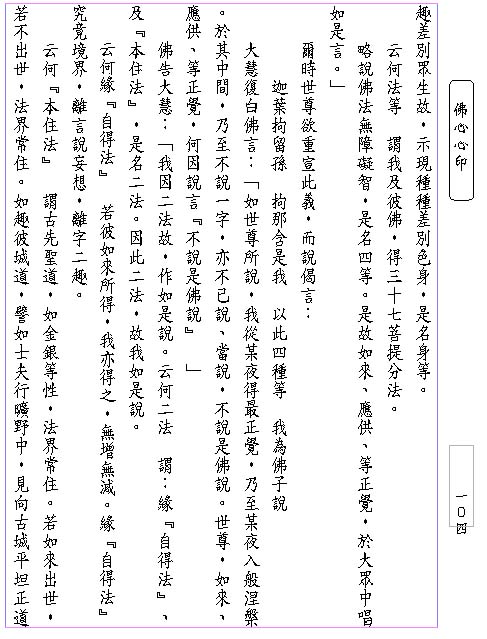 佛心心印
一〇四
趣差別眾生故，示現種種差別色身，是名身等。
云何法等　謂我及彼佛，得三十七菩提分法。
略說佛法無障礙智，是名四等。是故如來、應供、等正覺，於大眾中唱
如是言。」
爾時世尊欲重宣此義，而說偈言：
迦葉拘留孫　拘那含是我　以此四種等　我為佛子說
大慧復白佛言：「如世尊所說，我從某夜得最正覺，乃至某夜入般涅槃
。於其中間，乃至不說一字，亦不已說、當說，不說是佛說。世尊，如來、
應供、等正覺，何因說言『不說是佛說』　」
佛告大慧：「我因二法故，作如是說。云何二法　謂：緣『自得法』、
及『本住法』，是名二法。因此二法，故我如是說。
云何緣『自得法』　若彼如來所得，我亦得之，無增無減。緣『自得法』
究竟境界，離言說妄想，離字二趣。
云何『本住法』　謂古先聖道，如金銀等性，法界常住。若如來出世，
若不出世，法界常住。如趣彼城道，譬如士夫行曠野中，見向古城平坦正道